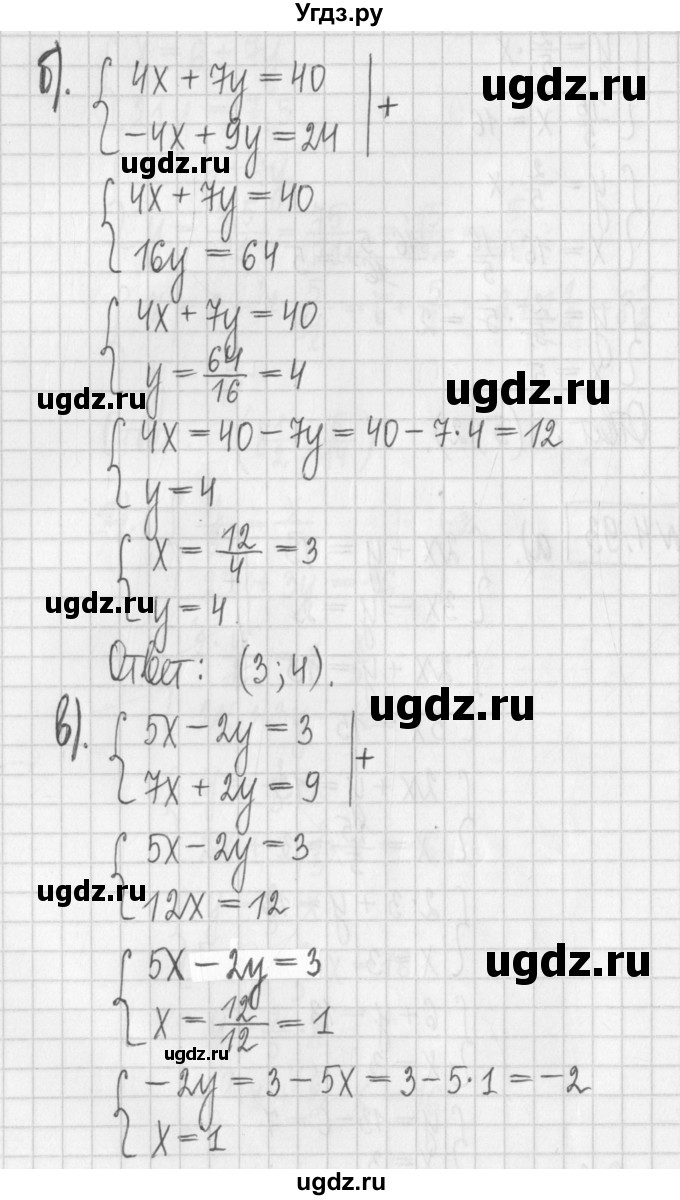 Угдз.ру
б). { 4x + 7y = 40 | +
{ -4x + 9y = 24
ugdz.ru
ugdz.ru
{ 4x + 7y = 40
{ 16y = 64
{ 4x + 7y = 40
{ y = 64/16 = 4
ugdz.ru
ugdz.ru
{ 4x = 40 - 7y = 40 - 7·4 = 12
{ y = 4
{ x = 12/4 = 3
{ y = 4
ugdz.ru
Ответ: (3; 4).
ugdz.ru
в). { 5x - 2y = 3 | +
{ 7x + 2y = 9
{ 5x - 2y = 3
{ 12x = 12
ugdz.ru
{ 5x - 2y = 3
{ x = 12/12 = 1
ugdz.ru
ugdz.ru
{ -2y = 3 - 5x = 3 - 5·1 = -2
{ x = 1
ugdz.ru